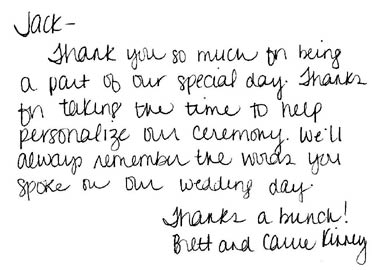 Jack-
Thank you so much for being
a part of our special day. Thanks
for taking the time to help
personalize our ceremony. We'll
always remember the words you
spoke on our wedding day.
Thanks a bunch!
Brett and Carrie Kinney